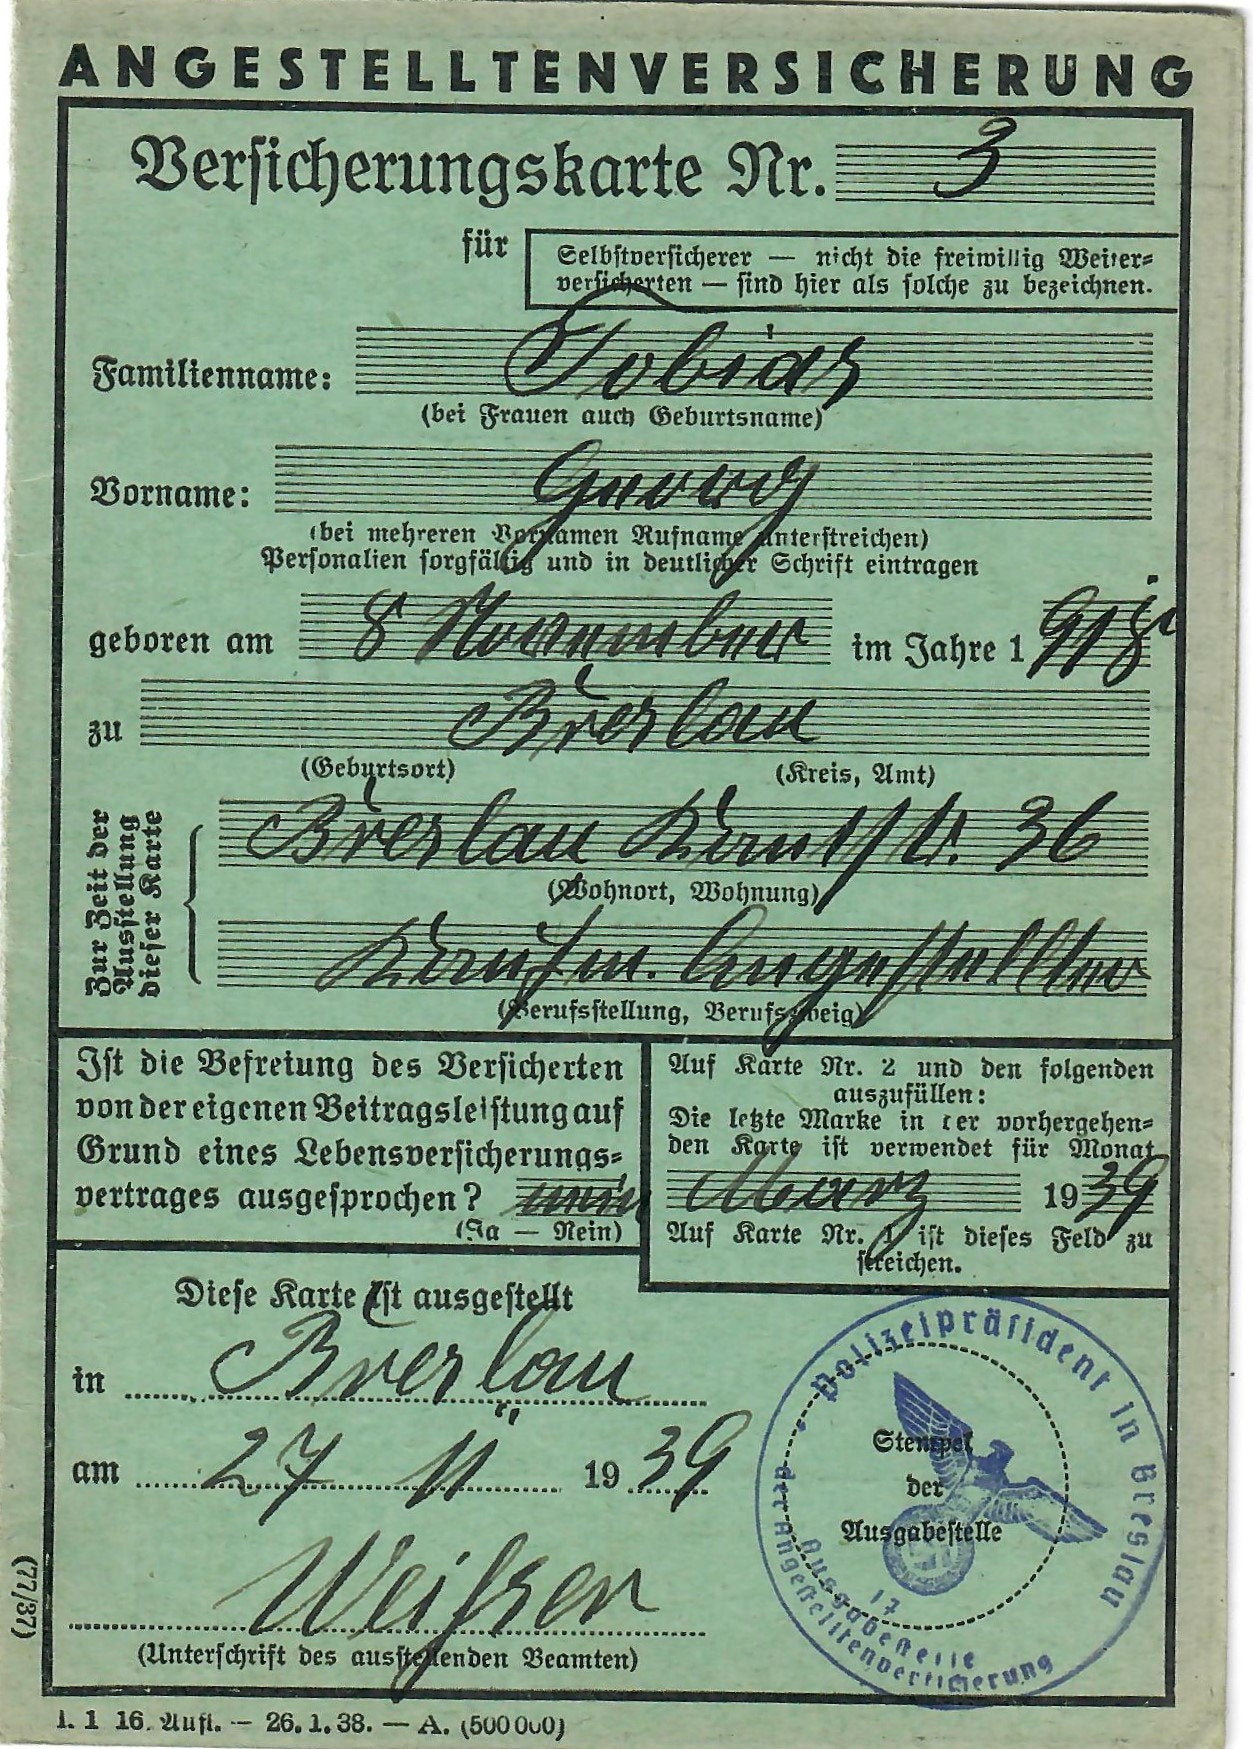 ANGESTELLTENVERSICHERUNG
Versicherungskarte Nr. 3
für
Selbstversicherer — nicht die freiwillig Weiter=
versicherten — sind hier als solche zu bezeichnen.
Familienname: Tobias
(bei Frauen auch Geburtsname)
Vorname: Georg
(bei mehreren Vornamen Rufname unterstreichen)
Personalien sorgfältig und in deutlicher Schrift eintragen
geboren am 8 November im Jahre 1918
zu Breslau
(Geburtsort) (Kreis, Amt)
Zur Zeit der
Ausstellung
dieser Karte
Breslau 36
(Wohnort, Wohnung)
Kaufm. Angestellter
(Berufsstellung, Berufszweig)
Ist die Befreiung des Versicherten
von der eigenen Beitragsleistung auf
Grund eines Lebensversicherungs=
vertrages ausgesprochen? nein
(Ja — Nein)
Auf Karte Nr. 2 und den folgenden
auszufüllen:
Die letzte Marke in der vorhergehen=
den Karte ist verwendet für Monat
März 1939
Auf Karte Nr. 1 ist dieses Feld zu
streichen.
Diese Karte ist ausgestellt
in Breslau
am 27 11 1939
(Unterschrift des ausstellenden Beamten)
Polizeipräsident in Breslau
Stempel
der
Ausgabestelle
17
Ausgabestelle
der Angestelltenversicherung
(77/37)
I. 1 16. Aufl. — 26. 1. 38. — A. (500 000)